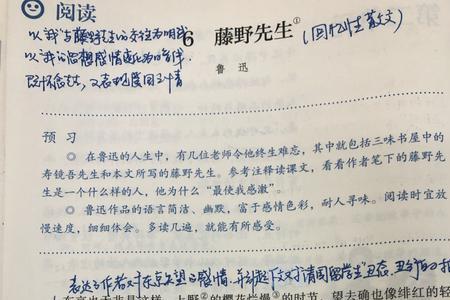 阅读
以"我"与藤野先生的交往为明线
6 藤野先生① (回忆性散文)
以"我"的思想感情变化为暗线
既怀念先生,又表现爱国之情
鲁迅
预习
◎ 在鲁迅的人生中,有几位老师令他终生难忘,其中就包括三味书屋中的
寿镜吾先生和本文所写的藤野先生。参考注释读课文,看看作者笔下的藤野先
生是一个什么样的人,他为什么“最使我感激”。
◎ 鲁迅作品的语言简洁、幽默,富于感情色彩,耐人寻味。阅读时宜放
慢速度,细细体会。多读几遍,就能有所感受。
表达了作者对东京失望的感情,并引起下文对"清国留学生"丑态、丑行的
东京也无非是这样。上野②的樱花烂熳③的时节,望去确也像绯红的轻